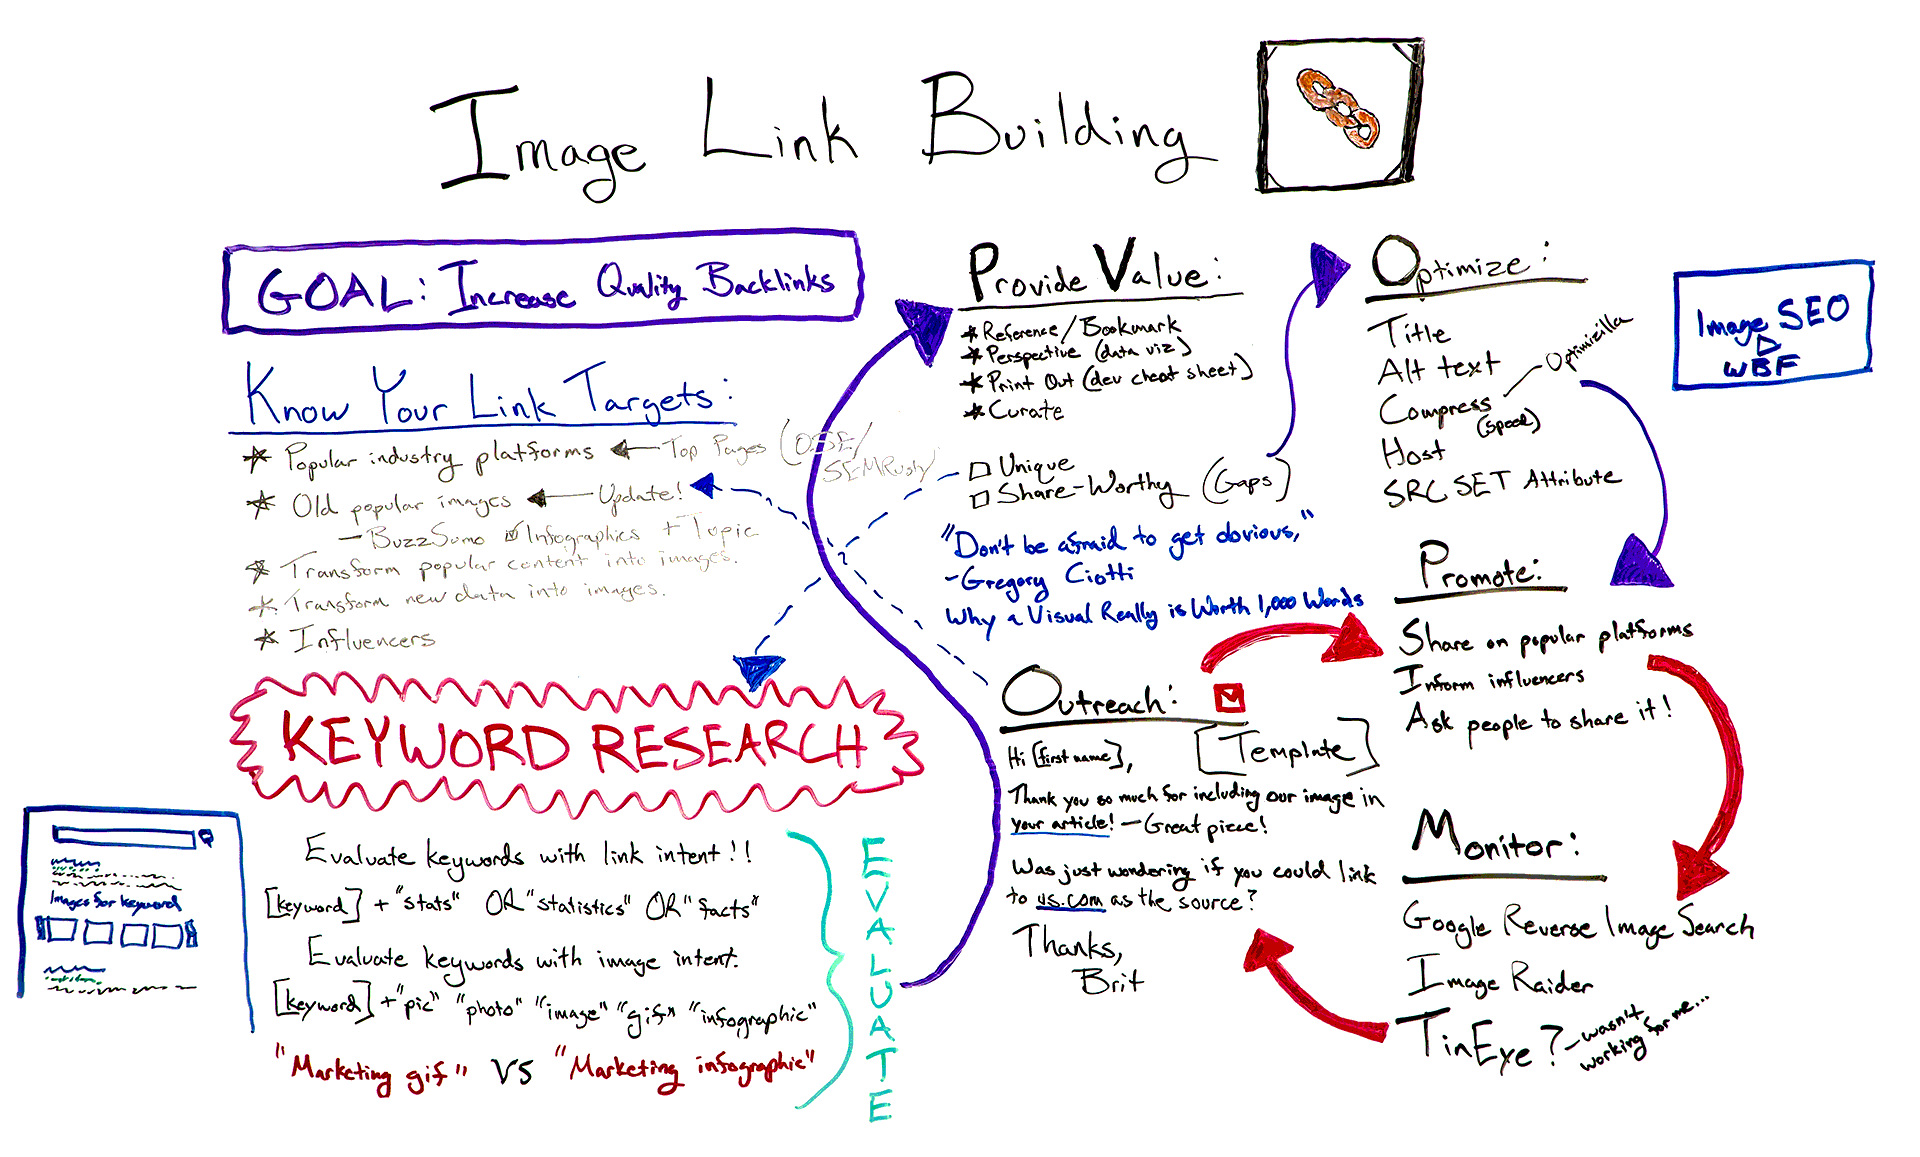 Image Link Building
GOAL: Increase Quality Backlinks
Know Your Link Targets:
* Popular industry platforms ← Top Pages (OSE/
SEMRush)
* Old popular images ← Update!
- BuzzSumo ☑ Infographics + Topic
* Transform popular content into images.
* Transform new data into images.
* Influencers
KEYWORD RESEARCH
Images for keyword
Evaluate keywords with link intent!!
[keyword] + "stats" OR "statistics" OR "facts"
Evaluate keywords with image intent.
[keyword] + "pic" "photo" "image" "gif" "infographic"
"Marketing gif" VS "Marketing infographic"
EVALUATE
Provide Value:
* Reference/Bookmark
* Perspective (data viz)
* Print Out (dev cheat sheet)
* Curate
☐ Unique
☐ Share-Worthy (Gaps)
"Don't be afraid to get obvious,"
- Gregory Ciotti
Why a Visual Really is Worth 1,000 Words
Outreach:
[Template]
Hi [first name],
Thank you so much for including our image in
your article! - Great piece!
Was just wondering if you could link
to us.com as the source?
Thanks,
Brit
Optimize:
Title
Alt text
Compress - Optimizilla
(speed)
Host
SRC SET Attribute
Image SEO
WBF
Promote:
Share on popular platforms
Inform influencers
Ask people to share it!
Monitor:
Google Reverse Image Search
Image Raider
TinEye? - wasn't
working for me...